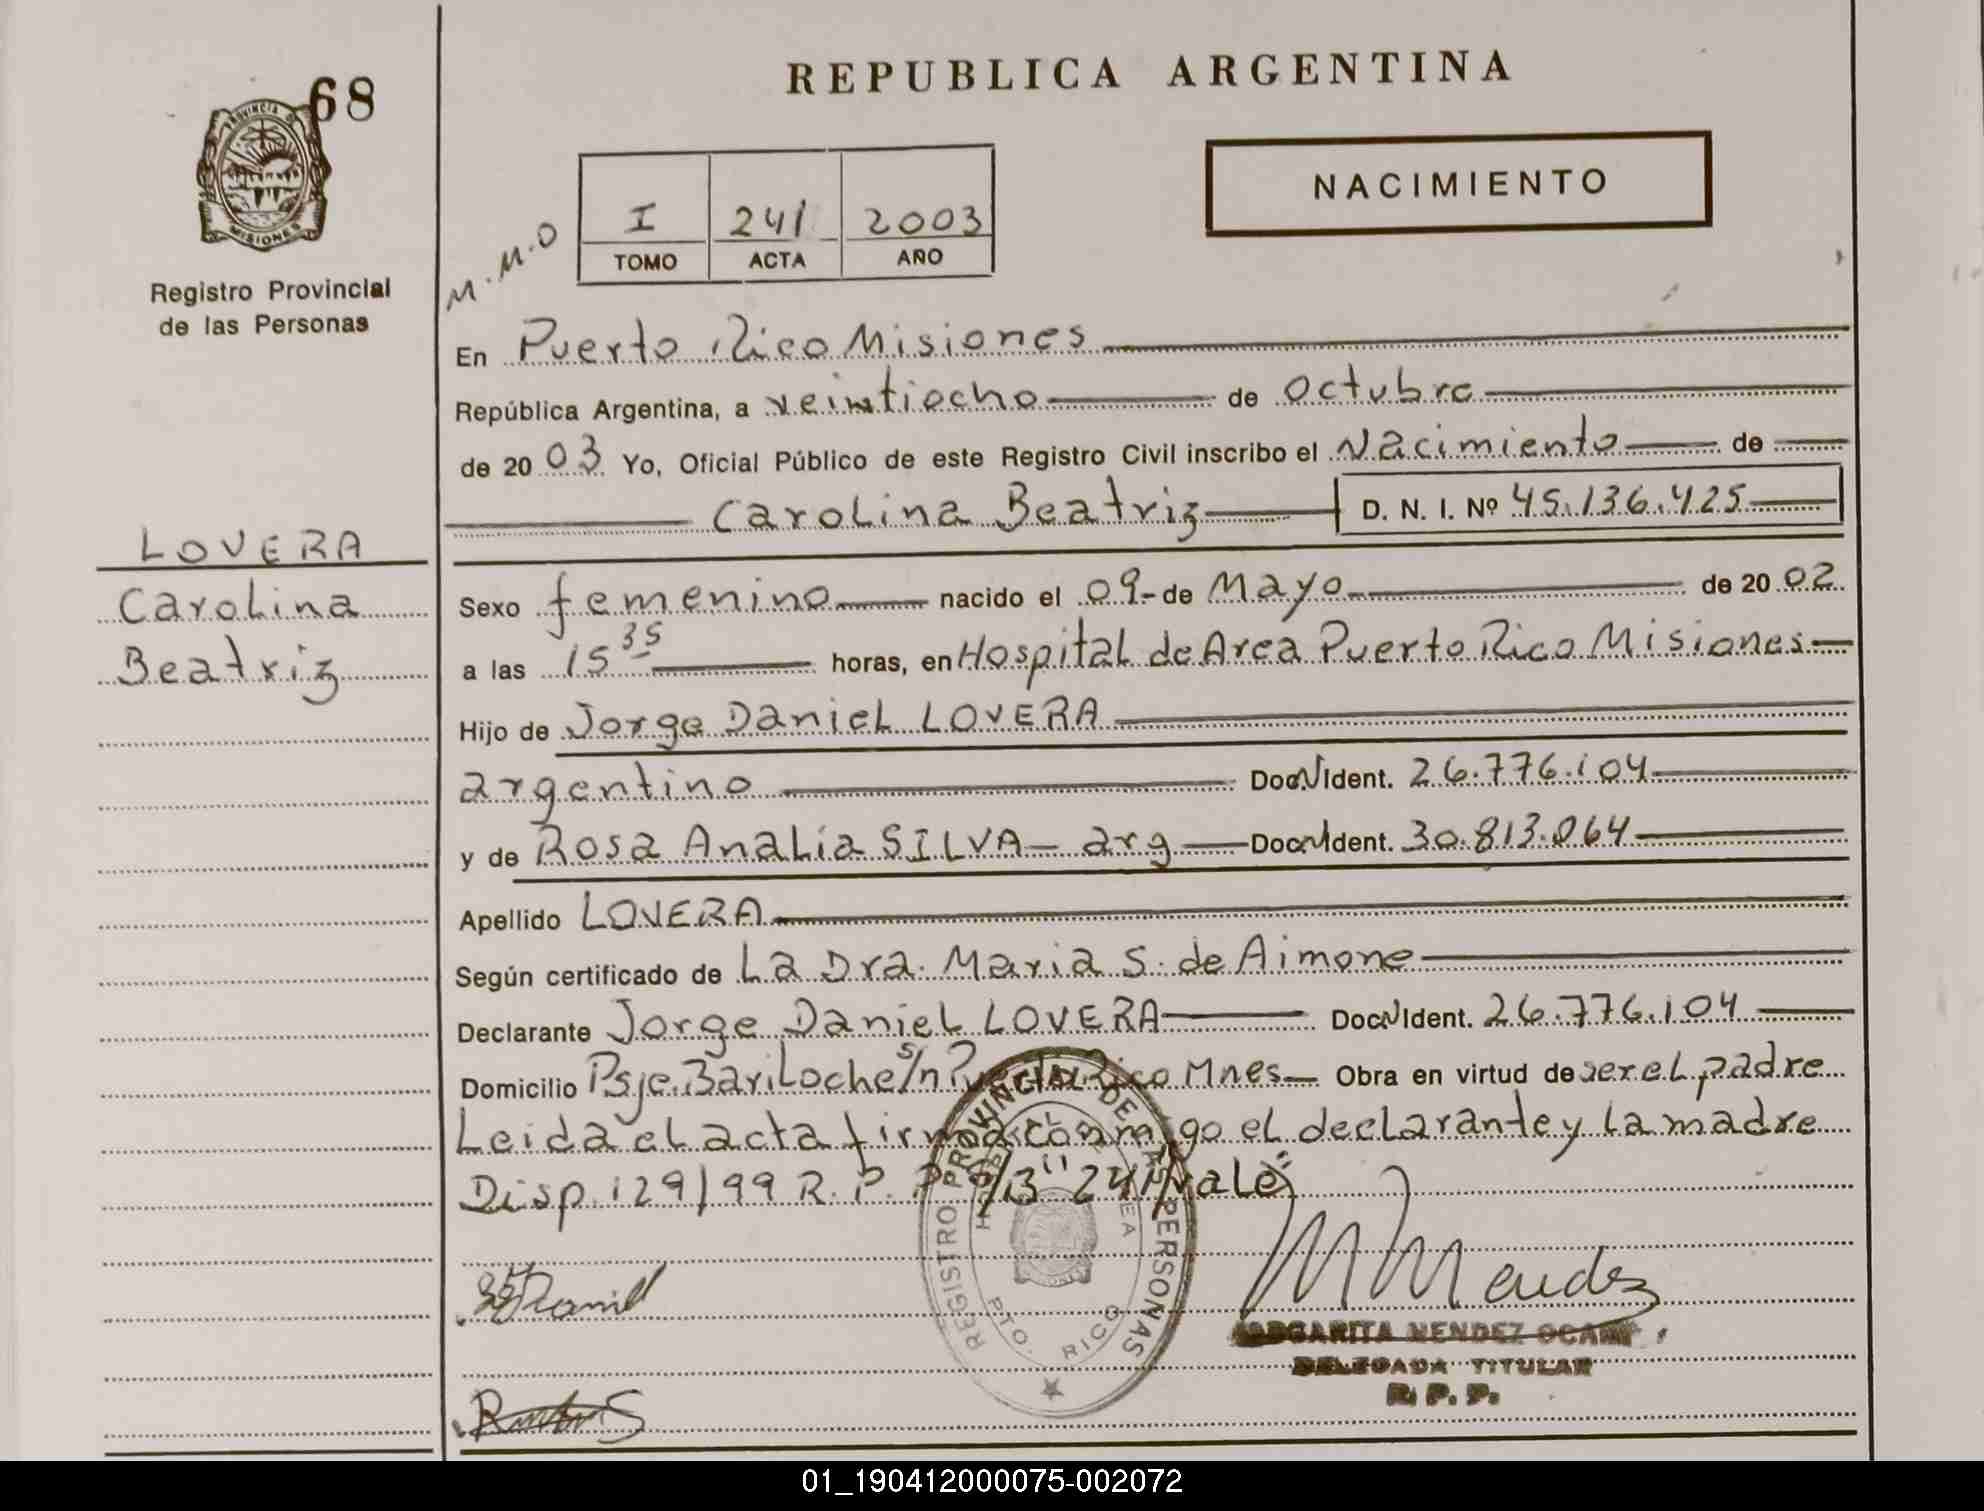 68
PROVINCIA DE
MISIONES
Registro Provincial
de las Personas
LOVERA
Carolina
Beatriz
REPUBLICA ARGENTINA
NACIMIENTO
M.M.O
I 241 2003
TOMO ACTA AÑO
En Puerto Rico Misiones
República Argentina, a veintiocho de octubre
de 20 03 Yo, Oficial Público de este Registro Civil inscribo el Nacimiento de
Carolina Beatriz D. N. I. Nº 45.136.425
Sexo femenino nacido el 09 de Mayo de 20 02
a las 15 35 horas, en Hospital de Area Puerto Rico Misiones
Hijo de Jorge Daniel LOVERA
argentino Doc. Ident. 26.776.104
y de Rosa Analía SILVA - arg Doc. Ident. 30.813.064
Apellido LOVERA
Según certificado de La Dra. Maria S. de Aimone
Declarante Jorge Daniel LOVERA Doc. Ident. 26.776.104
Domicilio Psje. Bariloche s/n Puerto Rico Mnes Obra en virtud de ser el padre
Leida el acta firma conmigo el declarante y la madre
Disp. 129/99 R. P. P. S/B "241" vale
REGISTRO PROVINCIAL DE LAS PERSONAS
HOSPITAL DE AREA
PTO. RICO
M Mendez
MARGARITA MENDEZ OCAMP
DELEGADA TITULAR
R. P. P.
01_190412000075-002072